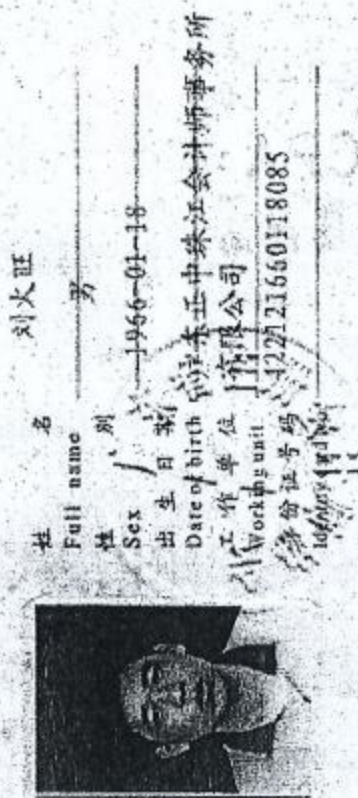 姓 名 刘火旺
Full name
性 别 男
Sex
出 生 日 期 1966-01-18
Date of birth
工 作 单 位 广东正中珠江会计师事务所
Working unit 有限公司
身份证号码 422121660118085
Identity card No.